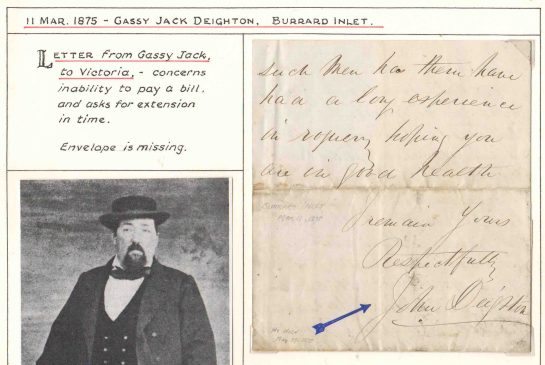 11 MAR. 1875 - GASSY JACK DEIGHTON, BURRARD INLET.
LETTER from GASSY JACK,
to VICTORIA, - concerns
inability to pay a bill.
and asks for extension
in time.
Envelope is missing.
such Men has them have
had a long experience
in roguery hoping you
are in good health
BURRARD INLET
March 11, 1875
I remain Yours
Respectfully
John Deighton
He died
May 29, 1875